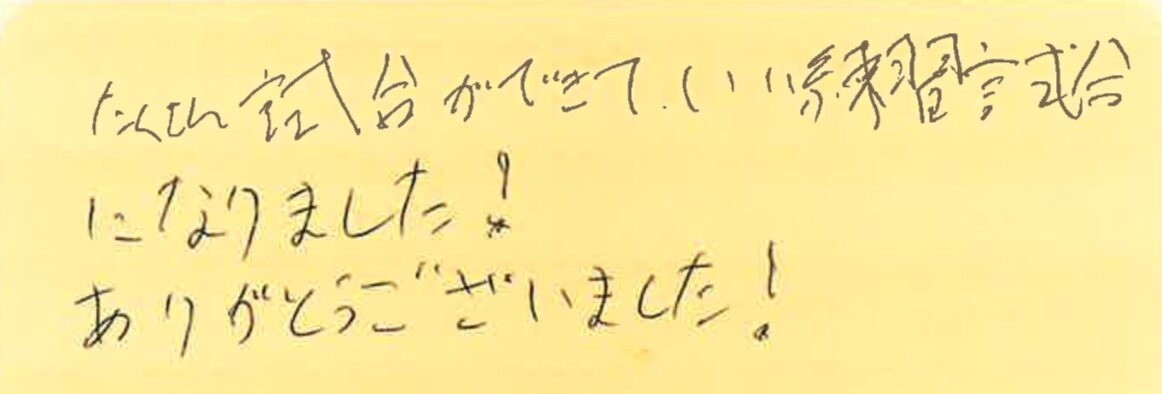 たくさん試合ができて、いい練習試合
になりました!
ありがとうございました!